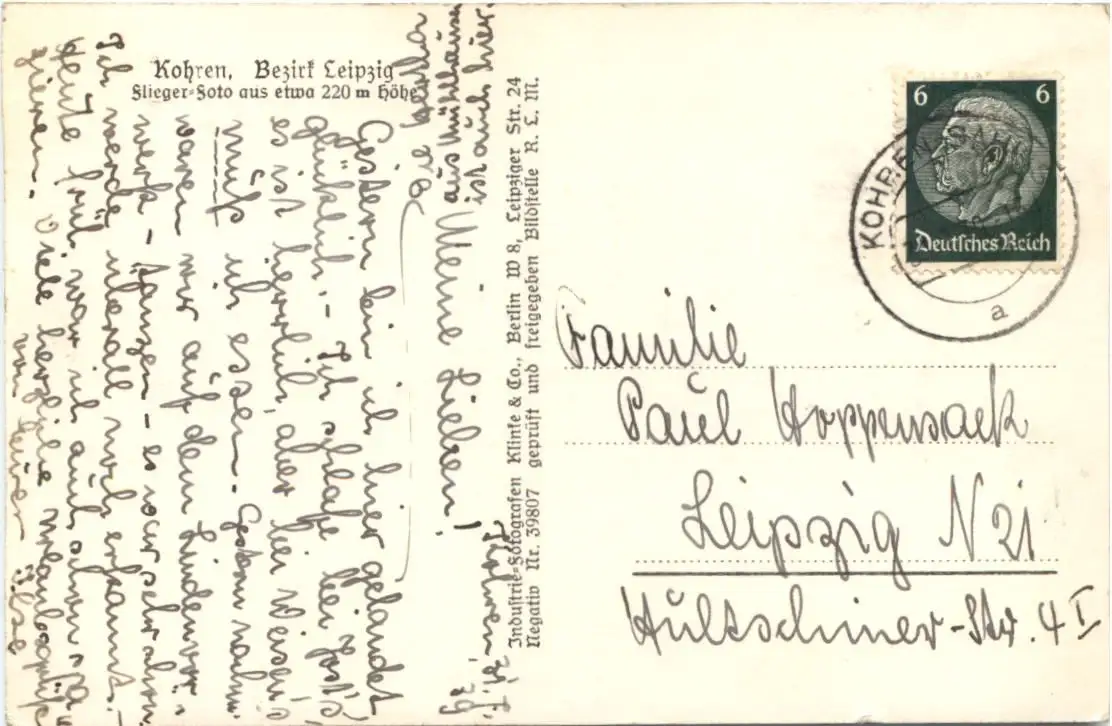 Kohren, Bezirk Leipzig
Flieger-Foto aus etwa 220 m Höhe
Industrie-Fotografen Klinke & Co., Berlin W 8, Leipziger Str. 24
Negativ Nr. 39807 geprüft und freigegeben Bildstelle R. L. M.
Kohren,
Meine Lieben!
Gestern bin ich hier gelandet,
glücklich. - Ich schlafe bei
es ist herrlich, aber bei
muß ich essen. Gestern
waren wir auf dem Lindenvor-
werk - tanzen - es war sehr schön.
Ich werde überall noch erkannt. -
Heute früh war ich auch schon
zieren. Viele herzliche Urlaubsgrüße
von Eurer Ilse
aus Mühlhausen
ist auch hier.
6 6
Deutsches Reich
KOHREN-SAHLIS
a
Familie
Paul Hoppensack
Leipzig N 21
Hultschiner-Str. 4 I